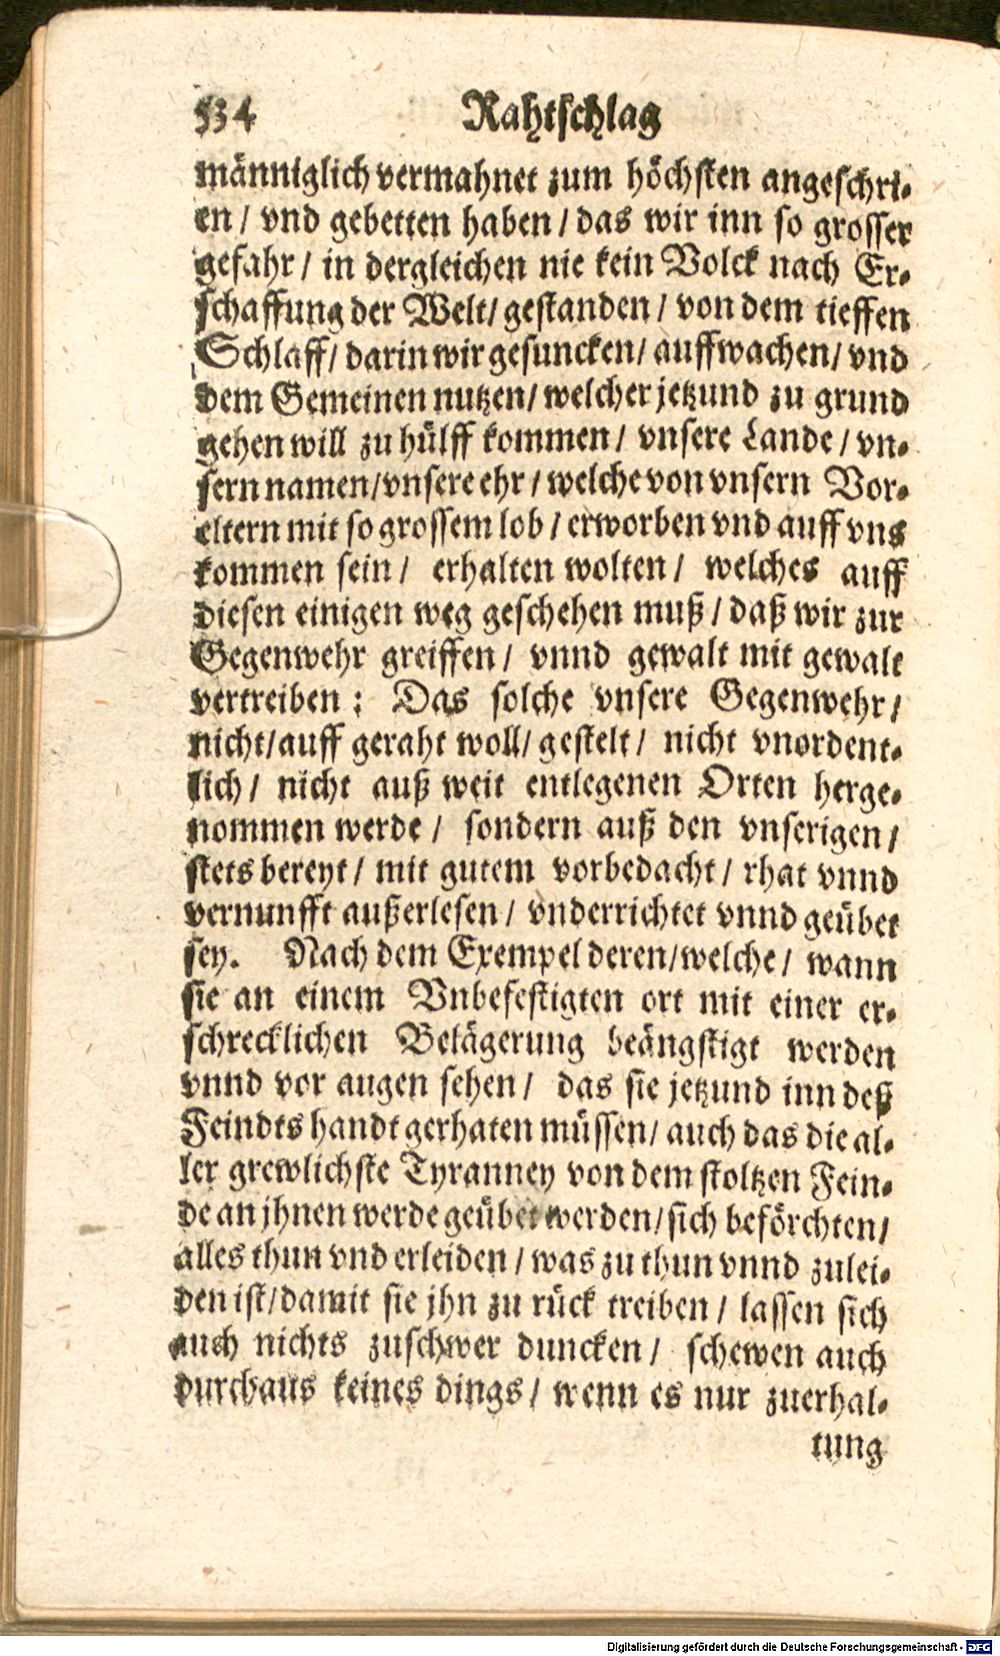 534 Rahtschlag
männiglich vermahnet zum höchsten angeschri-
en / vnd gebetten haben / das wir inn so grosser
gefahr / in dergleichen nie kein Volck nach Er-
schaffung der Welt / gestanden / von dem tieffen
Schlaff / darin wir gesuncken / auffwachen / vnd
dem Gemeinen nutzen / welcher jetzund zu grund
gehen will zu hülff kommen / vnsere Lande / vn-
sern namen / vnsere ehr / welche von vnsern Vor-
eltern mit so grossem lob / erworben vnd auff vns
kommen sein / erhalten wolten / welches auff
diesen einigen weg geschehen muß / daß wir zur
Gegenwehr greiffen / vnnd gewalt mit gewalt
vertreiben : Das solche vnsere Gegenwehr /
nicht / auff geraht woll / gestelt / nicht vnordent-
lich / nicht auß weit entlegenen Orten herge-
nommen werde / sondern auß den vnserigen /
stets bereyt / mit gutem vorbedacht / rhat vnnd
vernunfft außerlesen / vnderrichtet vnnd geübet
sey. Nach dem Exempel deren / welche / wann
sie an einem Vnbefestigten ort mit einer er-
schrecklichen Belägerung beängstigt werden
vnnd vor augen sehen / das sie jetzund inn deß
Feindts handt gerhaten müssen / auch das die al-
ler grewlichste Tyranney von dem stoltzen Fein-
de an jhnen werde geübet werden / sich beförchten /
alles thun vnd erleiden / was zu thun vnnd zulei-
den ist / damit sie jhn zu rück treiben / lassen sich
auch nichts zuschwer duncken / schewen auch
durchaus keines dings / wenn es nur zuerhal-
tung
Digitalisierung gefördert durch die Deutsche Forschungsgemeinschaft - DFG